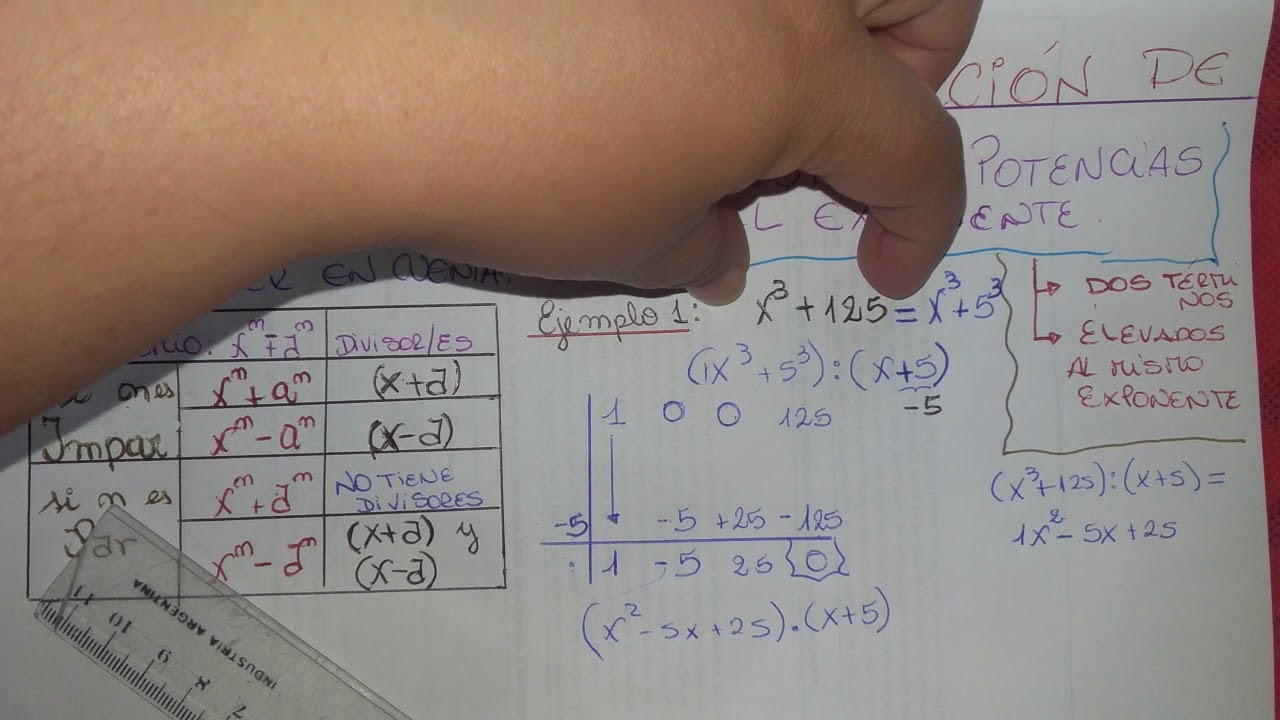 CIÓN DE
POTENCIAS
L EX ENTE
ER EN CUENTA:
cio: xⁿ ∓ aⁿ DIVISOR/ES
n es xⁿ + aⁿ (x+a)
Impar xⁿ - aⁿ (x-a)
si n es xⁿ + aⁿ NO TIENE
DIVISORES
Par xⁿ - aⁿ (x+a) y
(x-a)
Ejemplo 1: x³ + 125 = x³ + 5³
(1x³ + 5³) : (x+5)
-5
1 0 0 125
-5 -5 +25 -125
1 -5 25 {0}
(x² - 5x + 25) . (x+5)
DOS TÉRMI
NOS
ELEVADOS
AL MISMO
EXPONENTE
(x³+125) : (x+5) =
1x² - 5x + 25
INDUSTRIA ARGENTINA
11 10 9 8 7